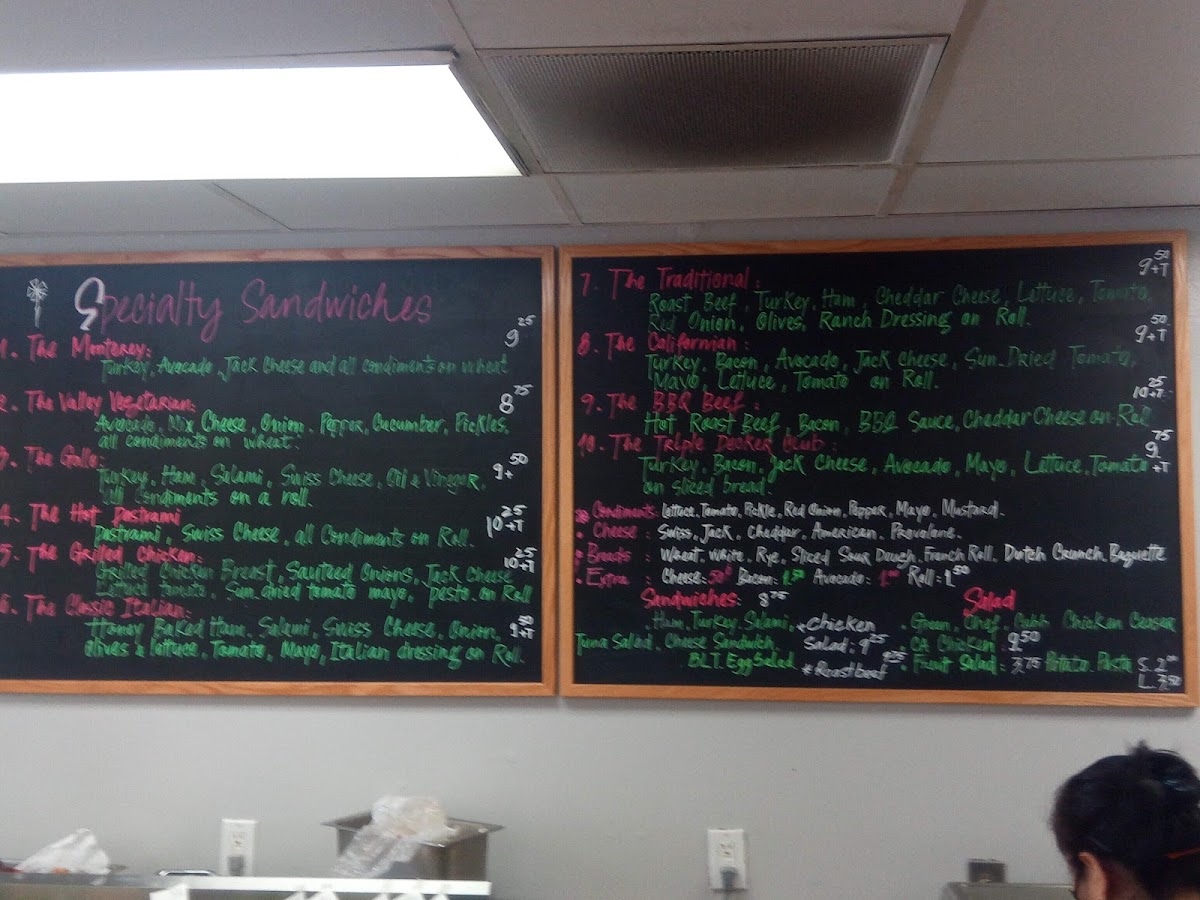 Specialty Sandwiches
1. The Monterey: 9 25
Turkey, Avocado, Jack Cheese and all condiments on wheat
2. The Valley Vegetarian: 8 75
Avocado, Mix Cheese, Onion, Pepper, Cucumber, Pickles,
all condiments on wheat.
3. The Gallo:
Turkey, Ham, Salami, Swiss Cheese, Oil & Vinegar, 9+ 50
all Condiments on a roll.
4. The Hot Pastrami
Pastrami, Swiss Cheese, all Condiments on Roll. 10+T 25
5. The Grilled Chicken: 10+T 25
Grilled Chicken Breast, Sauteed Onions, Jack Cheese
Lettuce tomato, Sun dried tomato mayo, pesto on Roll
6. The Classic Italian:
Honey Baked Ham, Salami, Swiss Cheese, Onion, 9+T 50
Olives & lettuce, Tomato, Mayo, Italian dressing on Roll.
7. The Traditional: 9+T 50
Roast Beef, Turkey, Ham, Cheddar Cheese, Lettuce, Tomato,
Red Onion, Olives, Ranch Dressing on Roll.
8. The Californian: 9+T 50
Turkey, Bacon, Avocado, Jack cheese, Sun-Dried Tomato,
Mayo, Lettuce, Tomato on Roll.
9. The BBQ Beef: 10+T 25
Hot Roast Beef, Bacon, BBQ Sauce, Cheddar Cheese on Roll
10. The Triple Decker Club:
Turkey, Bacon, Jack Cheese, Avocado, Mayo, Lettuce, Tomato 9+T 75
on sliced bread.
Condiments: Lettuce, Tomato, Pickle, Red Onion, Pepper, Mayo, Mustard.
Cheese: Swiss, Jack, Cheddar, American, Provolone.
Breads: Wheat, White, Rye, Sliced Sour Dough, French Roll, Dutch Crunch, Baguette
Extra: Cheese: 50¢ Bacon: 1.50 Avocado: 1.00 Roll: 1.50
Sandwiches: 8 75
Ham, Turkey, Salami,
Tuna Salad, Cheese Sandwich,
BLT, Egg Salad
*Chicken
Salad: 9 25
*Roast beef 9 25
Salad
Green, Chef, Cobb Chicken Ceasar
CA Chicken: 9 50
Fruit Salad: 3.75 Potato, Pasta S. 2
L. 3.50